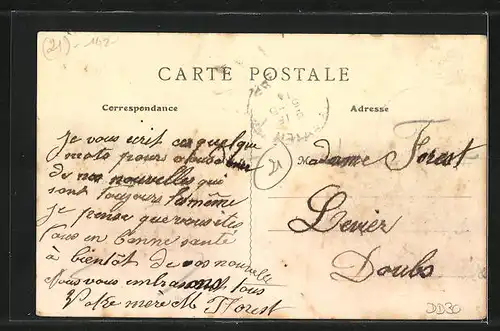 (21) - 142-
CARTE POSTALE
Correspondance
Adresse
je vous écrit ces quelque
mots pour vous
de nos nouvelles qui
sont toujours la même
je pense que vous ites
tous en bonne santé
à bientôt de vos nouvelle
Nous vous embrasons tous
Votre mère M Forest
Madame Forest
Levier
Doubs
DD20